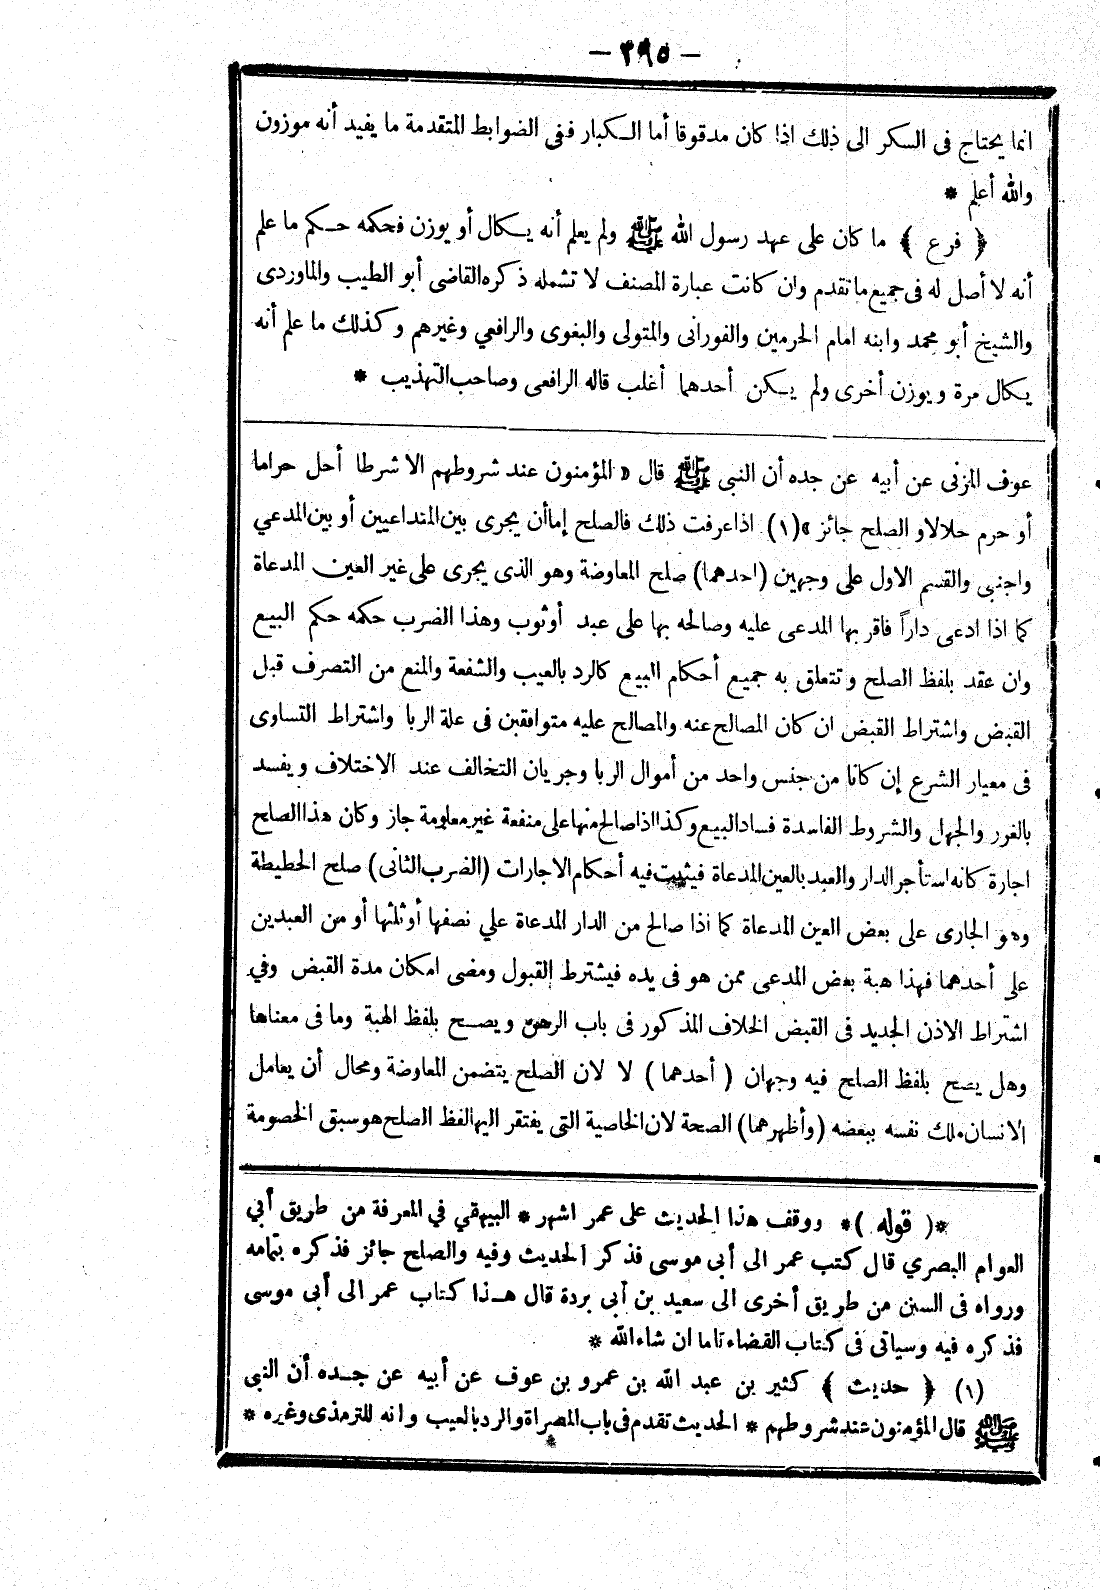 — ٢٩٥ —
انما يحتاج فى السكر الى ذلك اذا كان مدقوقا أما الـكبار ففى الضوابط المتقدمة ما يفيد أنه موزون
والله أعلم *
﴿ فرع ﴾ ما كان على عهد رسول الله ﷺ ولم يعلم أنه يـكال أو يوزن فحكمه حـكم ما علم
أنه لا أصل له فى جميع ما تقدم وان كانت عبارة المصنف لا تشمله ذكره القاضى أبو الطيب والماوردى
والشيخ أبو محمد وابنه امام الحرمين والفورانى والمتولى والبغوى والرافعي وغيرهم وكذلك ما علم أنه
يـكال مرة ويوزن أخرى ولم يـكن أحدهما أغلب قاله الرافعى وصاحب التهذيب *
عوف المزنى عن أبيه عن جده أن النبى ﷺ قال « المؤمنون عند شروطهم الا شرطا أحل حراما
أو حرم حلالا و الصلح جائز »(١) اذا عرفت ذلك فالصلح إما أن يجرى بين المتداعيين أو بين المدعي
واجنبى والقسم الاول على وجهين (احدهما) صلح المعاوضة وهو الذى يجرى على غير العين المدعاة
كما اذا ادعى داراً فاقر بها المدعى عليه وصالحه بها على عبد أوثوب وهذا الضرب حكمه حكم البيع
وان عقد بلفظ الصلح وتتعلق به جميع أحكام البيع كالرد بالعيب والشفعة والمنع من التصرف قبل
القبض واشتراط القبض ان كان المصالح عنه والمصالح عليه متوافقين فى علة الربا واشتراط التساوى
فى معيار الشرع إن كانا من جنس واحد من أموال الربا وجريان التخالف عند الاختلاف ويفسد
بالغرر والجهل والشروط الفاسدة فساد البيع وكذا اذا صالح منها على منفعة غير معلومة جاز وكان هذا الصلح
اجارة كانه استأجر الدار والعبد بالعين المدعاة فيثبت فيه أحكام الاجارات (الضرب الثانى) صلح الحطيطة
وهو الجارى على بعض العين المدعاة كما اذا صالح من الدار المدعاة علي نصفها أو ثلثها أو من العبدين
على أحدهما فهذا هبة بعض المدعى ممن هو فى يده فيشترط القبول ومضى امكان مدة القبض وفي
اشتراط الاذن الجديد فى القبض الخلاف المذكور فى باب الرهن ويصـح بلفظ الهبة وما فى معناها
وهل يصح بلفظ الصلح فيه وجهان ( أحدهما ) لا لان الصلح يتضمن المعاوضة ومحال أن يعامل
الانسان ملك نفسه ببعضه (وأظهرهما) الصحة لان الخاصية التى يفتقر اليها لفظ الصلح هو سبق الخصومة
*( قوله )* ووقف هذا الحديث على عمر اشهر * البيهقي في المعرفة من طريق أبي
العوام البصري قال كتب عمر الى أبى موسى فذكر الحديث وفيه والصلح جائز فذكره بتمامه
ورواه فى السنن من طريق أخرى الى سعيد بن أبى بردة قال هـذا كتاب عمر الى أبى موسى
فذكره فيه وسياتى فى كتاب القضاء تاما ان شاء الله *
(١) ﴿ حديث ﴾ كثير بن عبد الله بن عمرو بن عوف عن أبيه عن جـده أن النبى
ﷺ قال المؤمنون عند شروطهم * الحديث تقدم فى باب المصراة والرد بالعيب وانه للترمذى وغيره *
*